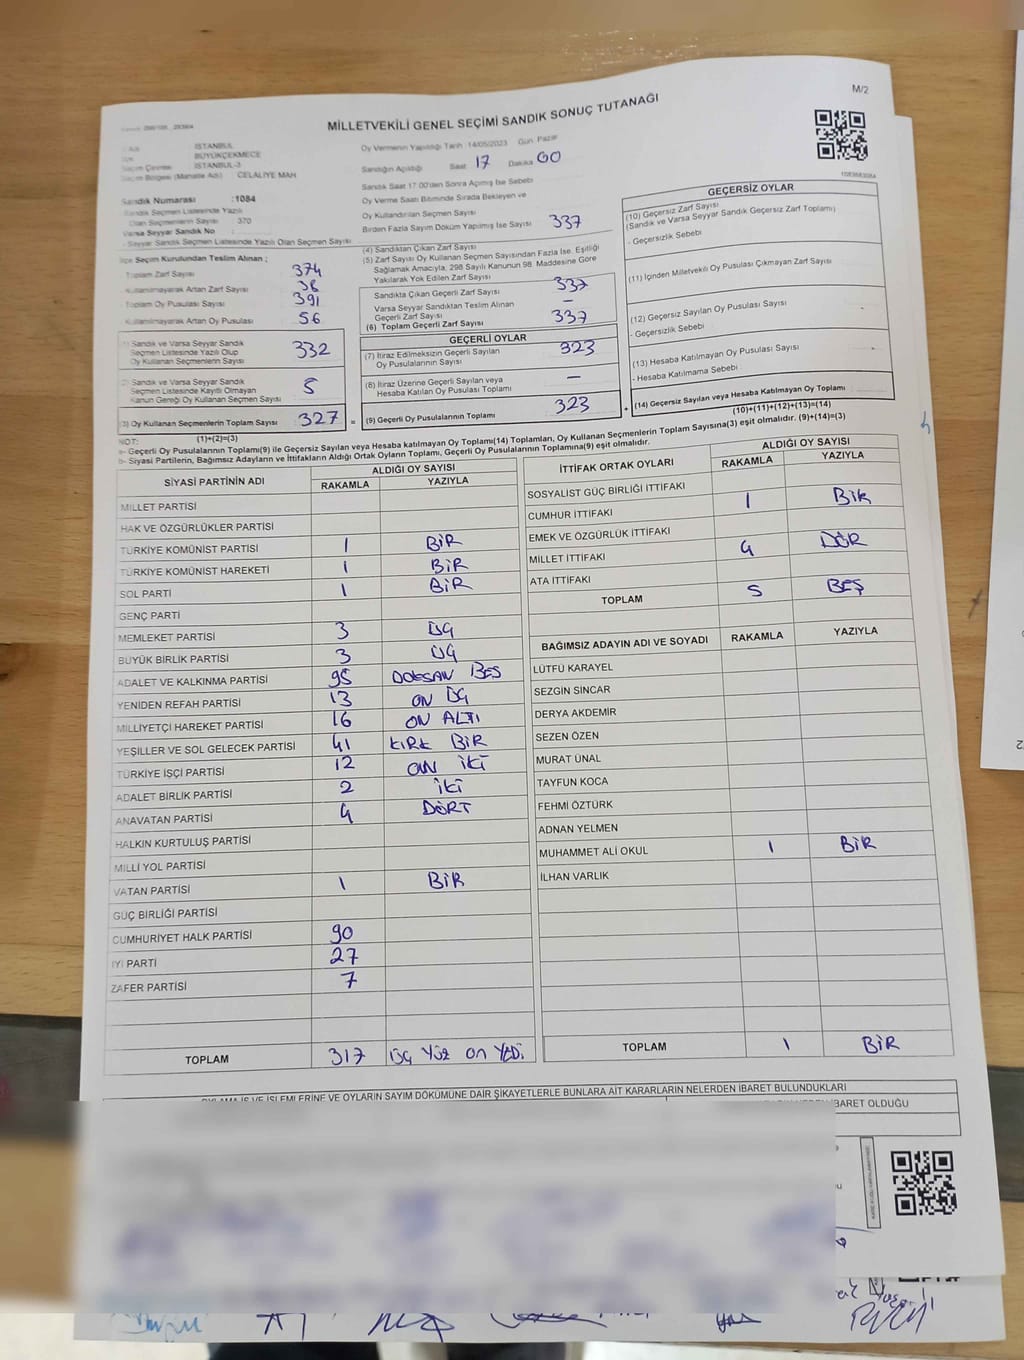 M/2
MİLLETVEKİLİ GENEL SEÇİMİ SANDIK SONUÇ TUTANAĞI
İSTANBUL
BÜYÜKÇEKMECE
İSTANBUL-3
Seçim Bölgesi (Mahalle Adı) CELALİYE MAH
Oy Vermenin Yapıldığı Tarih 14/05/2023 Gün Pazar
Sandığın Açıldığı Saat 17 Dakika 00
Sandık Saat 17:00'den Sonra Açımış İse Sebebi
Oy Verme Saati Bitiminde Sırada Bekleyen ve
Oy Kullandırılan Seçmen Sayısı
Birden Fazla Sayım Döküm Yapılmış İse Sayısı 337
Sandık Numarası :1084
Sandık Seçmen Listesinde Yazılı
Olan Seçmenlerin Sayısı : 370
Varsa Seyyar Sandık No
- Seyyar Sandık Seçmen Listesinde Yazılı Olan Seçmen Sayısı
İlçe Seçim Kurulundan Teslim Alınan ;
Toplam Zarf Sayısı 374
Kullanılmayarak Artan Zarf Sayısı 38
Toplam Oy Pusulası Sayısı 391
Kullanılmayarak Artan Oy Pusulası 56
(1) Sandık ve Varsa Seyyar Sandık
Seçmen Listesinde Yazılı Olup
Oy Kullanan Seçmenlerin Sayısı 332
(2) Sandık ve Varsa Seyyar Sandık
Seçmen Listesinde Kayıtlı Olmayan
Kanun Gereği Oy Kullanan Seçmen Sayısı 5
(3) Oy Kullanan Seçmenlerin Toplam Sayısı 327 =
(1)+(2)=(3)
(4) Sandıktan Çıkan Zarf Sayısı
(5) Zarf Sayısı Oy Kullanan Seçmen Sayısından Fazla İse, Eşitliği
Sağlamak Amacıyla, 298 Sayılı Kanunun 98. Maddesine Göre
Yakılarak Yok Edilen Zarf Sayısı
Sandıkta Çıkan Geçerli Zarf Sayısı 337
Varsa Seyyar Sandıktan Teslim Alınan
Geçerli Zarf Sayısı –
(6) Toplam Geçerli Zarf Sayısı 337
GEÇERLİ OYLAR
(7) İtiraz Edilmeksizin Geçerli Sayılan
Oy Pusulalarının Sayısı 323
(8) İtiraz Üzerine Geçerli Sayılan veya
Hesaba Katılan Oy Pusulası Toplamı –
(9) Geçerli Oy Pusulalarının Toplamı 323 +
GEÇERSİZ OYLAR
(10) Geçersiz Zarf Sayısı
(Sandık ve Varsa Seyyar Sandık Geçersiz Zarf Toplamı)
- Geçersizlik Sebebi
(11) İçinden Milletvekili Oy Pusulası Çıkmayan Zarf Sayısı
(12) Geçersiz Sayılan Oy Pusulası Sayısı
- Geçersizlik Sebebi
(13) Hesaba Katılmayan Oy Pusulası Sayısı
- Hesaba Katılmama Sebebi
(14) Geçersiz Sayılan veya Hesaba Katılmayan Oy Toplamı
(10)+(11)+(12)+(13)=(14)
NOT:
a- Geçerli Oy Pusulalarının Toplamı(9) ile Geçersiz Sayılan veya Hesaba katılmayan Oy Toplamı(14) Toplamları, Oy Kullanan Seçmenlerin Toplam Sayısına(3) eşit olmalıdır. (9)+(14)=(3)
b- Siyasi Partilerin, Bağımsız Adayların ve İttifakların Aldığı Ortak Oyların Toplamı, Geçerli Oy Pusulalarının Toplamına(9) eşit olmalıdır.
SİYASİ PARTİNİN ADI ALDIĞI OY SAYISI
RAKAMLA YAZIYLA
MİLLET PARTİSİ
HAK VE ÖZGÜRLÜKLER PARTİSİ
TÜRKİYE KOMÜNİST PARTİSİ 1 BİR
TÜRKİYE KOMÜNİST HAREKETİ 1 BİR
SOL PARTİ 1 BİR
GENÇ PARTİ
MEMLEKET PARTİSİ 3 ÜÇ
BÜYÜK BİRLİK PARTİSİ 3 ÜÇ
ADALET VE KALKINMA PARTİSİ 95 DOKSAN BEŞ
YENİDEN REFAH PARTİSİ 13 ON ÜÇ
MİLLİYETÇİ HAREKET PARTİSİ 16 ON ALTI
YEŞİLLER VE SOL GELECEK PARTİSİ 41 KIRK BİR
TÜRKİYE İŞÇİ PARTİSİ 12 ON İKİ
ADALET BİRLİK PARTİSİ 2 İKİ
ANAVATAN PARTİSİ 4 DÖRT
HALKIN KURTULUŞ PARTİSİ
MİLLİ YOL PARTİSİ
VATAN PARTİSİ 1 BİR
GÜÇ BİRLİĞİ PARTİSİ
CUMHURİYET HALK PARTİSİ 90
İYİ PARTİ 27
ZAFER PARTİSİ 7
TOPLAM 317 ÜÇ YÜZ ON YEDİ
İTTİFAK ORTAK OYLARI ALDIĞI OY SAYISI
RAKAMLA YAZIYLA
SOSYALİST GÜÇ BİRLİĞİ İTTİFAKI
CUMHUR İTTİFAKI 1 BİR
EMEK VE ÖZGÜRLÜK İTTİFAKI
MİLLET İTTİFAKI 4 DÖR
ATA İTTİFAKI
TOPLAM 5 BEŞ
BAĞIMSIZ ADAYIN ADI VE SOYADI RAKAMLA YAZIYLA
LÜTFÜ KARAYEL
SEZGİN SİNCAR
DERYA AKDEMİR
SEZEN ÖZEN
MURAT ÜNAL
TAYFUN KOCA
FEHMİ ÖZTÜRK
ADNAN YELMEN
MUHAMMET ALİ OKUL 1 BİR
İLHAN VARLIK
TOPLAM 1 BİR
OYLAMA İŞ VE İŞLEMLERİNE VE OYLARIN SAYIM DÖKÜMÜNE DAİR ŞİKAYETLERLE BUNLARA AİT KARARLARIN NELERDEN İBARET BULUNDUKLARI
İBARET OLDUĞU